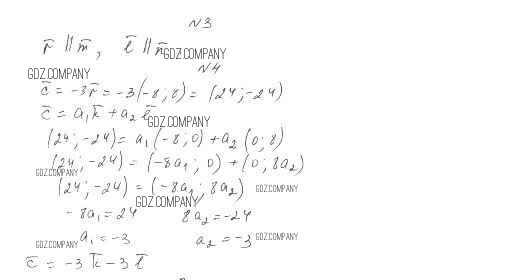 N3
r̄ ∥ m̄, l̄ ∥ n̄
GDZ.COMPANY
N4
GDZ.COMPANY
c̄ = -3r̄ = -3(-8; 8) = (24; -24)
c̄ = a₁k̄ + a₂l̄
GDZ.COMPANY
(24; -24) = a₁(-8; 0) + a₂(0; 8)
(24; -24) = (-8a₁; 0) + (0; 8a₂)
GDZ.COMPANY
(24; -24) = (-8a₁; 8a₂)
GDZ.COMPANY
GDZ.COMPANY
-8a₁ = 24 8a₂ = -24
a₁ = -3 a₂ = -3
GDZ.COMPANY
GDZ.COMPANY
c̄ = -3k̄ - 3l̄